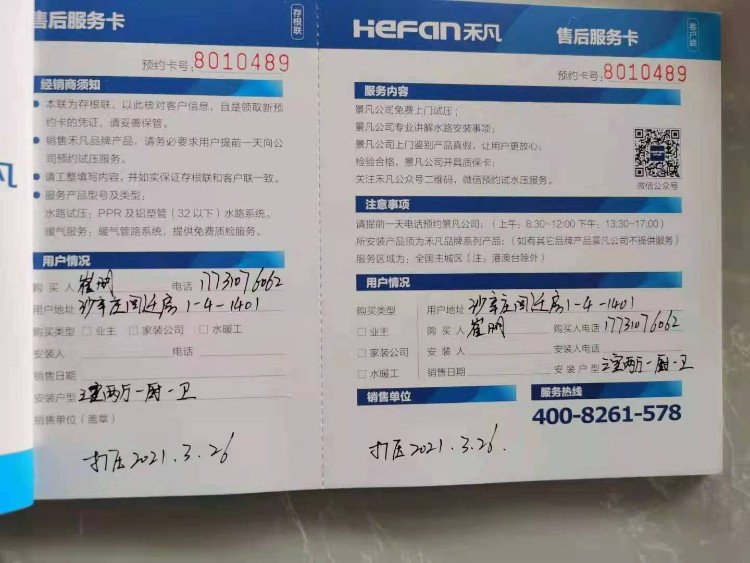 售后服务卡
存根联
预约卡号:8010489
经销商须知
本联为存根联,以此核对客户信息,且是领取新预
约卡的凭证,请妥善保管。
销售禾凡品牌产品,请务必要求用户提前一天向公
司预约试压服务。
请工整填写内容,并如实保证存根联和客户联一致。
服务产品型号及类型:
水路试压:PPR及铝塑管(32以下)水路系统。
暖气服务:暖气管路系统,提供免费质检服务。
用户情况
购买人 崔明 电话 17731076062
用户地址 沙辛庄回迁房1-4-1401
购买类型 □业主 □家装公司 □水暖工
安装人 电话
销售日期
安装户型 三室两厅一厨一卫
销售单位(盖章)
打压2021.3.26
HeFan禾凡
售后服务卡
客户联
预约卡号:8010489
服务内容
景凡公司免费上门试压;
景凡公司专业讲解水路安装事项;
景凡公司上门鉴别产品真假,让用户更放心;
检验合格,景凡公司开具质保卡;
关注禾凡公众号二维码,微信预约试水压服务。
微信公众号
注意事项
请提前一天电话预约景凡公司:(上午:8:30-12:00 下午:13:30-17:00)
所安装产品须为禾凡品牌系列产品:(如有其它品牌产品景凡公司不提供服务)
服务区域为:全国主城区(注:港澳台除外)
用户情况
购买类型 用户地址 沙辛庄回迁房1-4-1401
□业主 购买人 崔明 购买人电话 17731076062
□家装公司 安装人 安装人电话
□水暖工 销售日期 安装户型 三室两厅一厨一卫
销售单位
服务热线
400-8261-578
打压2021.3.26.